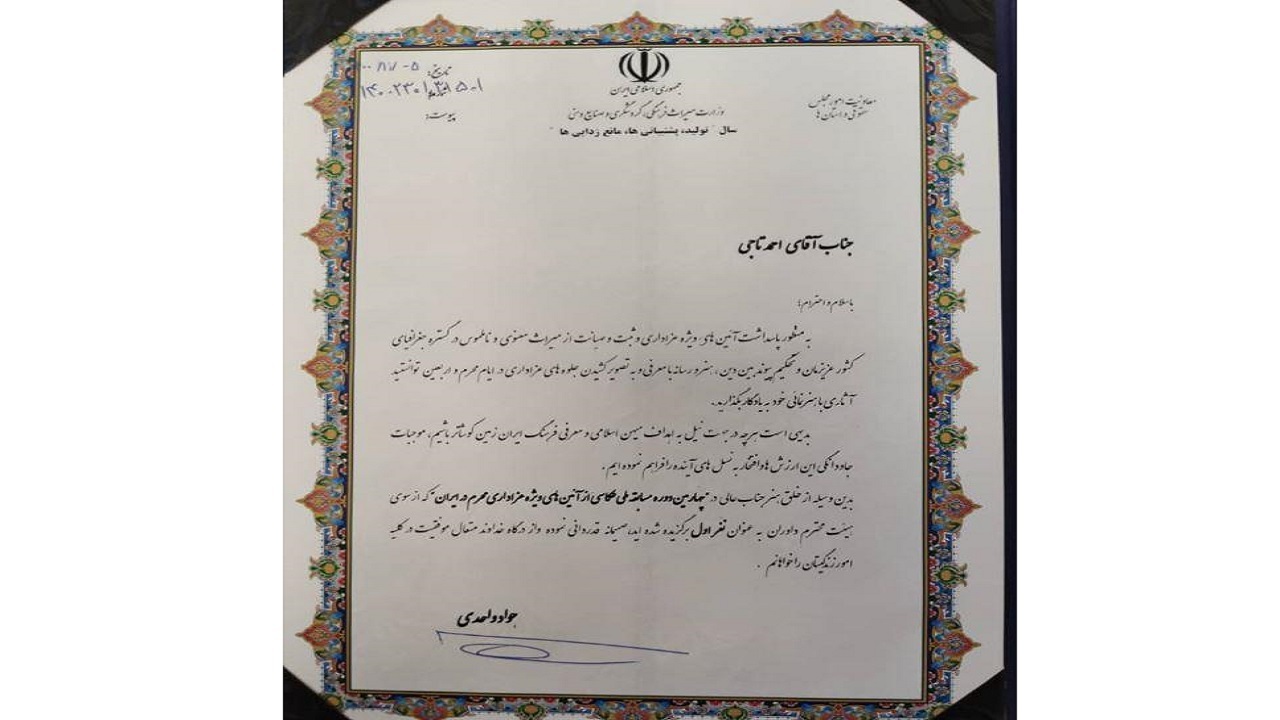 جمهوری اسلامی ایران
وزارت میراث فرهنگی، گردشگری و صنایع دستی
سال " تولید، پشتیبانی ها، مانع زدایی ها "
معاونیت امور مجلس
حقوقی و استان ها
تاریخ:
شماره:
پیوست:
جناب آقای احمد تاجی
با سلام و احترام؛
به منظور پاسداشت آئین های ویژه عزاداری و ثبت و صیانت از میراث معنوی و ناملموس در گستره جغرافیای
کشور عزیزمان و تحکیم پیوند بین دین ، هنر و رسانه با معرفی و به تصویر کشیدن جلوه های عزاداری در ایام محرم و اربعین توانستید
آثاری با هنرنمائی خود به یادگار بگذارید.
بدیهی است هرچه در جهت نیل به اهداف میهن اسلامی و معرفی فرهنگ ایران زمین کوشاتر باشیم، موجبات
جاودانگی این ارزش ها و افتخار به نسل های آینده را فراهم نموده ایم .
بدین وسیله از خلق هنر جناب عالی در "چهارمین دوره مسابقه ملی عکاسی از آئین های ویژه عزاداری محرم در ایران" که از سوی
هیئت محترم داوران به عنوان نفر اول برگزیده شده اید، صمیمانه قدردانی نموده و از درگاه خداوند متعال موفقیت در کلیه
امور زندگیتان را خواهانم .
جواد واحدی